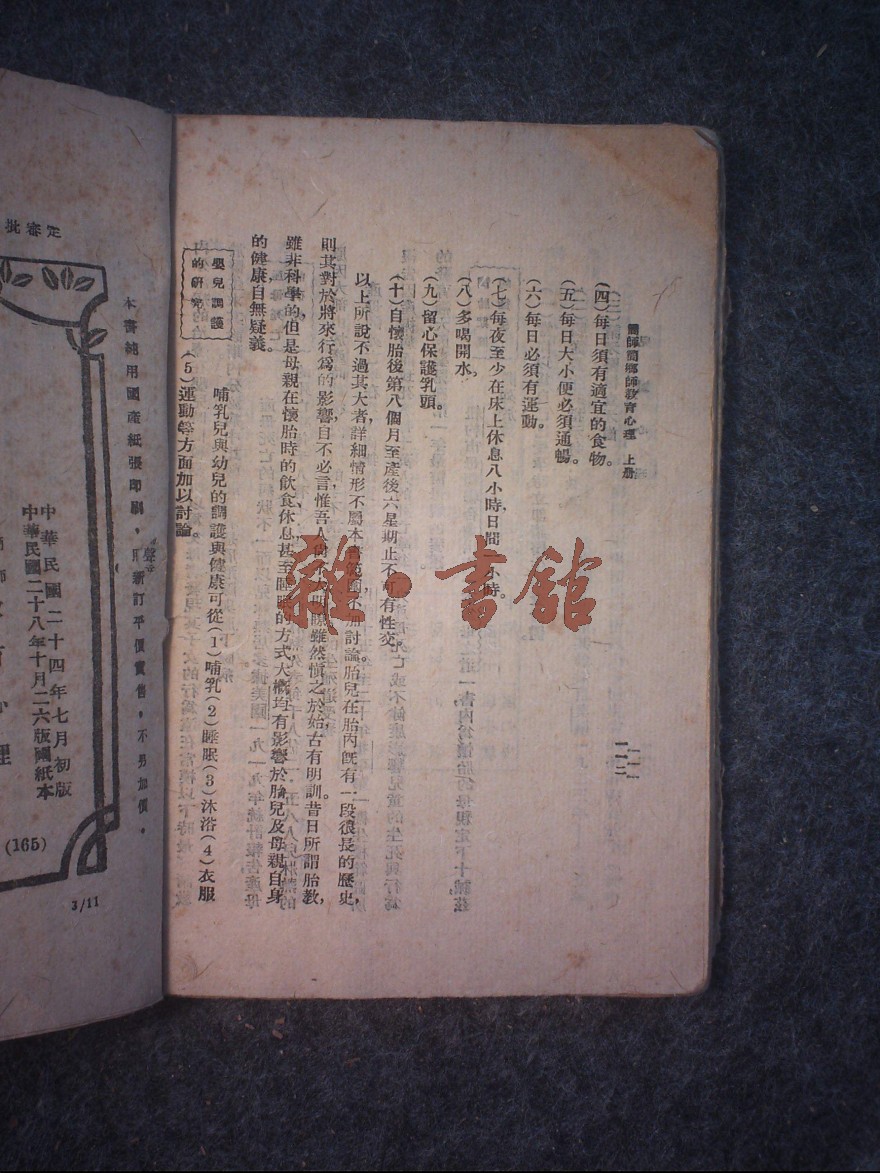 簡師簡鄉師教育心理　上册
一一二
（四）每日須有適宜的食物。
（五）每日大小便必須通暢。
（六）每日必須有運動。
（七）每夜至少在床上休息八小時，日間　小時。
（八）多喝開水，
（九）留心保護乳頭。
（十）自懷胎後第八個月至產後六星期止不可有性交。
以上所說不過其大者，詳細情形不屬本書範圍，不加討論。胎兒在胎內既有一段很長的歷史，
則其對於將來行爲的影響自不必言。惟吾人尚不明瞭雖然愼之於始古有明訓昔日所謂胎教，
雖非科學的，但是母親在懷胎時的飲食、休息甚至睡眠的方式大概均有影響於胎兒及母親自身
的健康，自無疑義。
嬰兒調護
的研究
哺乳兒與幼兒的調護與健康可從（1）哺乳（2）睡眠（3）沐浴（4）衣服
（5）運動等方面加以討論。
雜·書館
定審批
本書純用國產紙張印刷，
訂平價實售，不另加價。
中華民國二十四年七月初版
中華民國二十八年十月二六版國紙本
(165)
3/11